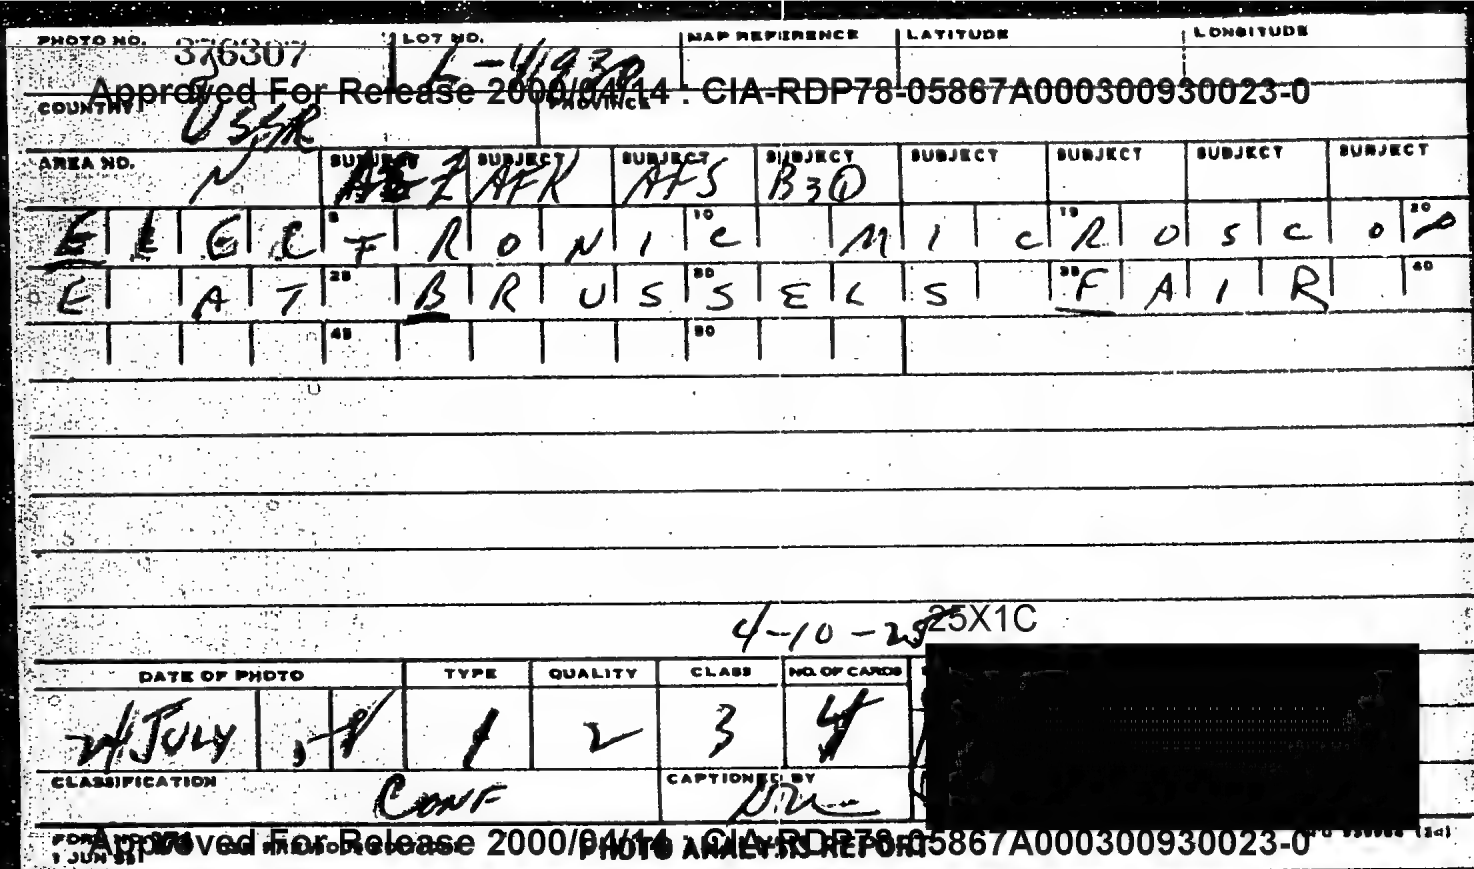 PHOTO NO. 376307 LOT NO. L-41930 MAP REFERENCE LATITUDE LONGITUDE
Approved For Release 2000/04/14 : CIA-RDP78-05867A000300930023-0
COUNTRY USSR PROVINCE
AREA NO. N SUBJECT SUBJECT AFK SUBJECT AFS SUBJECT B3Q SUBJECT SUBJECT SUBJECT SUBJECT
ELECTRONIC MICROSCOP
E AT BRUSSELS FAIR
4-10-25 25X1C
DATE OF PHOTO TYPE QUALITY CLASS NO. OF CARDS
24 JULY 1 2 3 4
CLASSIFICATION CONF CAPTIONED BY
Approved For Release 2000/04/14 : CIA-RDP78-05867A000300930023-0
1 JUN PHOTO ANALYSIS REPORT